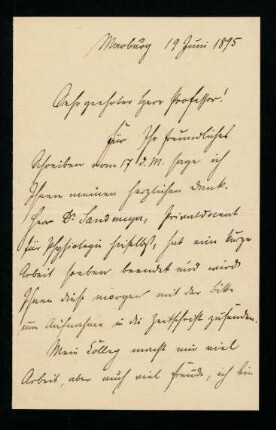 Marburg 19 Juni 1895
Sehr geehrter Herr Professor!
Für Ihr freundliches
Schreiben vom 17 d. M. sage ich
Ihnen meinen herzlichen Dank.
Herr Dr. Sandmeyer, Privatdocent
für Physiologie hieselbst, hat eine kurze
Arbeit soeben beendet und wird
Ihnen diese morgen mit der Bitte
um Aufnahme in die Zeitschrift zusenden.
Mein Colleg macht mir viel
Arbeit, aber auch viel Freude, ich bin